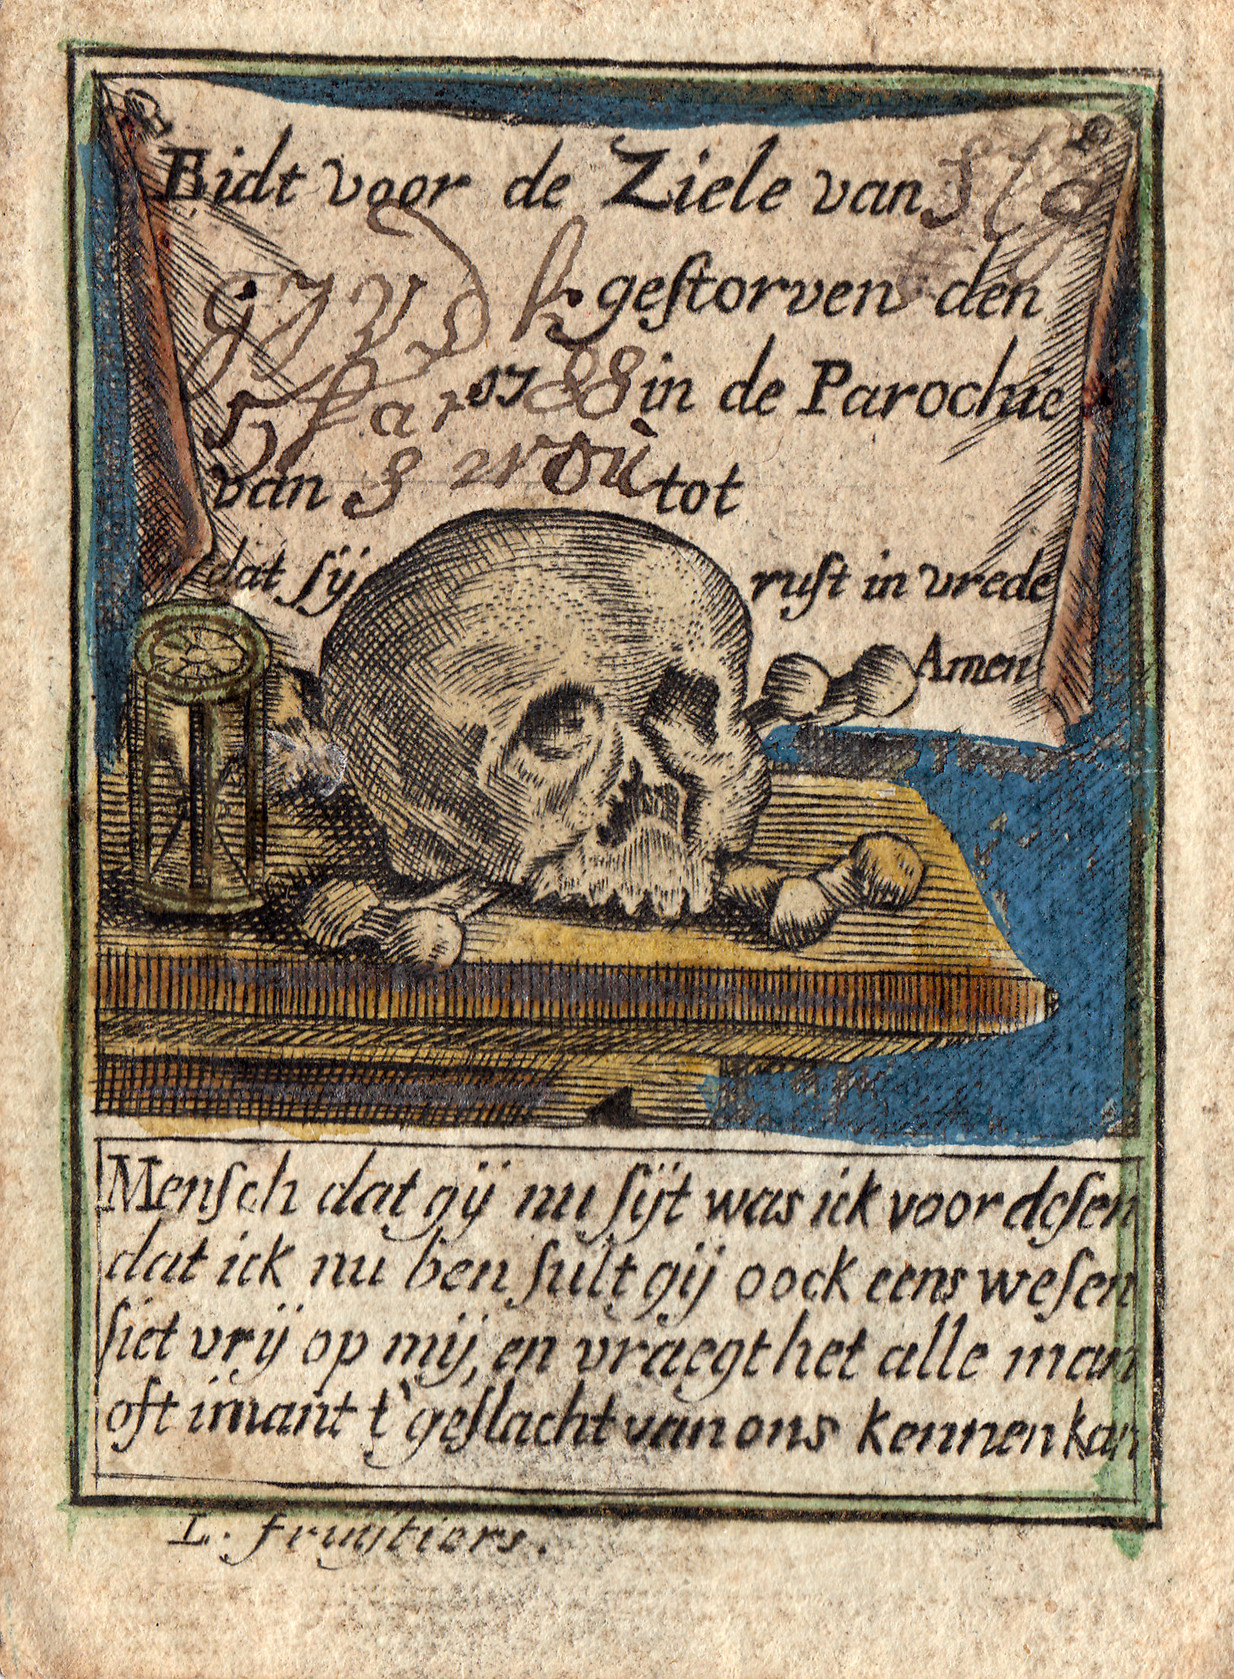 Bidt voor de Ziele van
gestorven den
1788 in de Parochie
van tot
dat sij rust in vrede
Amen
Mensch dat gij nu sijt was ick voor desen
dat ick nu ben sult gij oock eens wesen
siet vrij op mij, en vraegt het alle man
oft imant t' geslacht van ons kennen kan
L. fruijtiers.